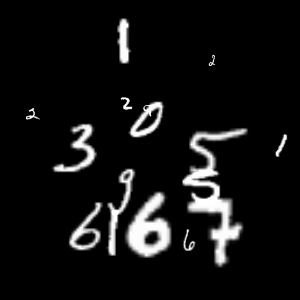 1
2
2
2 9 0
3 5 1
9 5
6 1 6 6 7